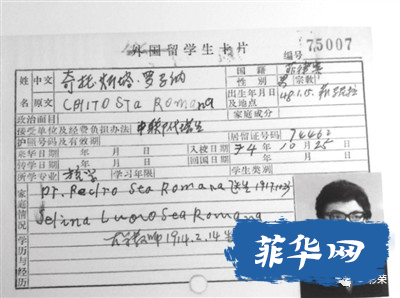 外国留学生卡片
编号 75007
姓名 中文 奇托·斯塔·罗曼纳 国籍 菲律宾
原文 CHITO Sta Romana 性别 男 宗教
政治面目 出生年月日及地点 48.1.5. 家庭成分
接受单位及经费负担办法 中联部代招生
护照号码及有效期 居留证号码 74462
来华日期 年 月 日 入校日期 74年 10月 25日
转学日期 年 月 日 回国日期 年 月 日
所学专业 哲学 学习年限 学生类别
家庭情况 Dr. Pedro Sta Romana (医生 1917.
Selina Luono Sta Romana
大学教师 1914.2.14 生
学历与经历
菲华网